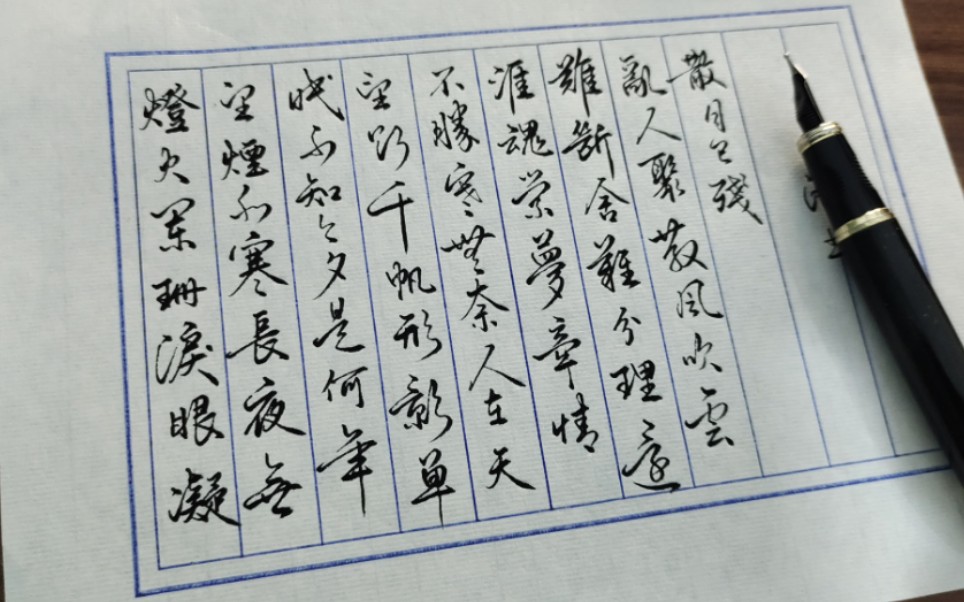 燈火闌珊淚眼凝
望煙水寒長夜無
眠不知今夕是何年
望斷千帆形影單
不勝寒無奈人在天
涯魂縈夢牽情
難斷舍難分理還
亂人聚散風吹雲
散月已殘